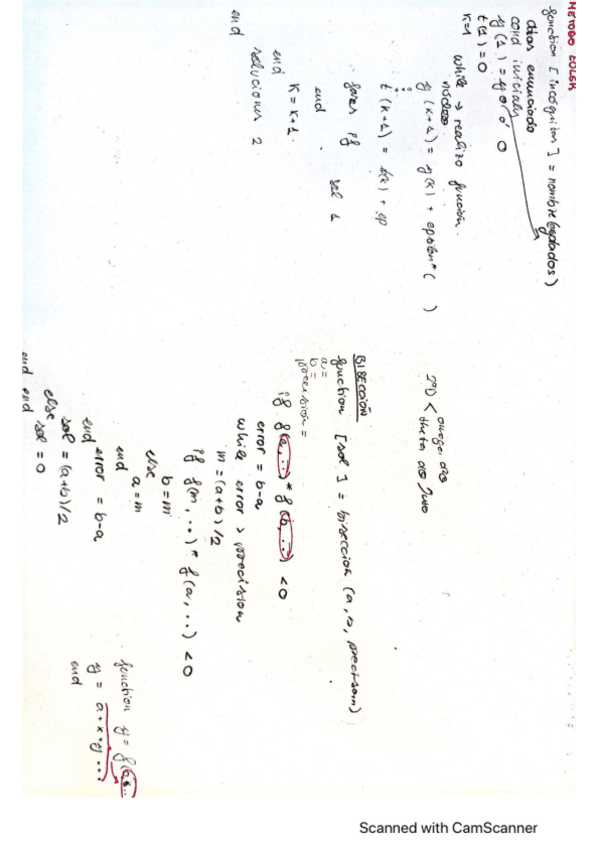 METODO EULER
function [incógnitas] = nombre (dados)
datos enunciado
cond iniciales
y(1) = yo ó 0
t(1) = 0
k=1
while → realizo función.
y(k+1) = y(k) + epsilon*( )
t(k+1) = t(k) + ep
if sol 1
end
k = k+1.
end
soluciones 2
end
2ºD < omega
theta
BISECCIÓN
function [sol] = biseccion (a, b, precision)
a=
b=
precision =
if f(a,..) * f(b,..) <0
error = b-a
while error > precision
m = (a+b)/2
if f(m,..) * f(a,..) <0
b=m
else
a=m
end
error = b-a
end
sol = (a+b)/2
else
sol = 0
end end
function y = f(
y = a+x+y...
end
Scanned with CamScanner